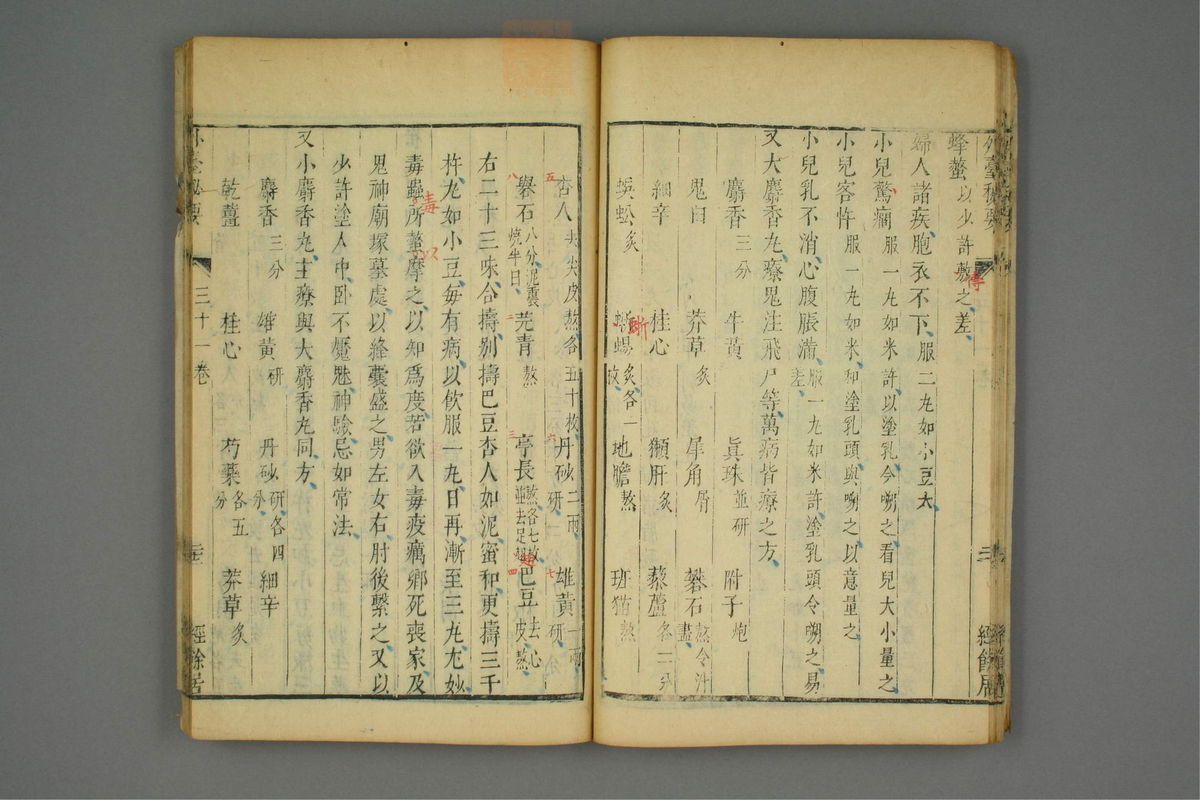 外臺秘要
蜂螫以少許敷之差
傅
婦人諸疾胞衣不下服二丸如小豆大
小兒驚癇服一丸如米許以塗乳令嗍之看兒大小量之
小兒客忤服一丸如米和塗乳頭與嗍之以意量之
小兒乳不消心腹脹滿服一丸如米許塗乳頭令嗍之易差
又大麝香丸療鬼注飛尸等萬病皆療之方
麝香三分 牛黃 眞珠並研 附子炮
鬼臼 莽草炙 犀角屑 礬石熬令汁盡
細辛 桂心 獺肝炙 藜蘆各二分
蜈蚣炙 蜥蜴炙各一枚 地膽熬 斑猫熬
蜥
經餘居
杏人去尖皮熬各五十枚 丹砂二兩研 雄黃一兩研
五 六 七
礜石八分泥裹燒半日 芫青熬 亭長熬各七枚並去足翅 巴豆去心皮熬
八 二 三 四
右二十三味合擣別擣巴豆杏人如泥蜜和更擣三千
杵丸如小豆每有病以飲服一丸日再漸至三丸尤妙
毒蟲所螫摩之以知爲度若欲入毒疫癘鄉死喪家及
毒
鬼神廟塚墓處以絳囊盛之男左女右肘後繫之又以
少許塗人中卧不魘魅神驗忌如常法
又小麝香丸主療與大麝香丸同方
麝香三分 雄黃研 丹砂研各四分 細辛
乾薑 桂心 芍藥各五分 莽草炙
外臺秘要 三十一卷 經餘居